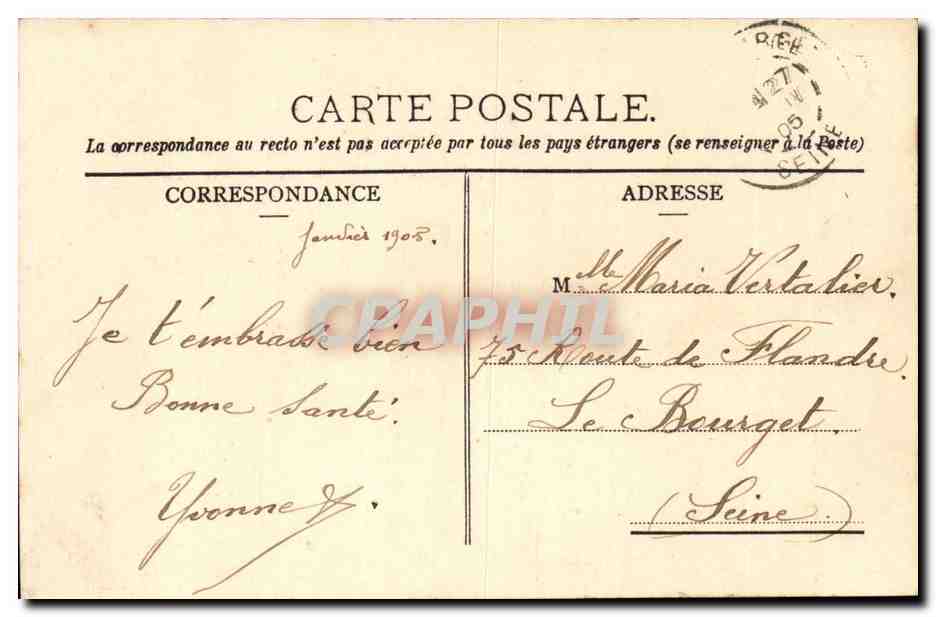 CARTE POSTALE.
La correspondance au recto n'est pas acceptée par tous les pays étrangers (se renseigner à la Poste)
CORRESPONDANCE
Janvier 1905.
Je t'embrasse bien
Bonne Santé.
Yvonne
ADRESSE
M Mlle Maria Vertalier.
75 Route de Flandre.
Le Bourget.
(Seine.)
27
05
SEINE
CPAPHIL